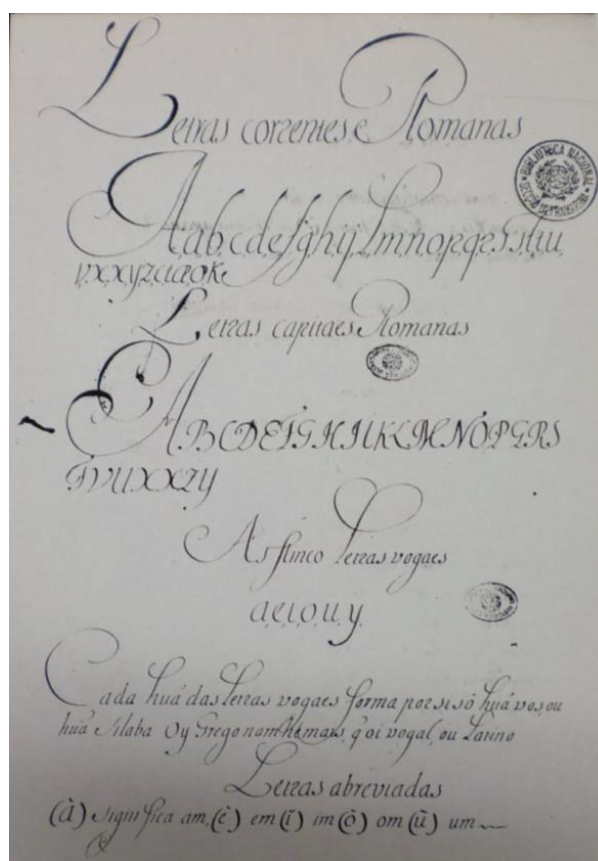 Letras correntes e Romanas
BIBLIOTECA NACIONAL
A, a, b, c, d, e, f, g, h, y, l, m, n, o, p, q, r, s, s, t, u, u
v, x, x, y, z
Letras capitaes Romanas
A B C D E F G H I K L M N O P Q R S
T V U X X Z Y
As sinco Letras vogaes
a, e, i, o, u, y,
Cada huá das Letras vogaes forma por si só huá vos, ou
huá silaba O y Grego nam hé mais, q' o i vogal, ou Latino
Letras abreviadas
(ã) significa am, (ẽ) em (ĩ) im (õ) om (ũ) um